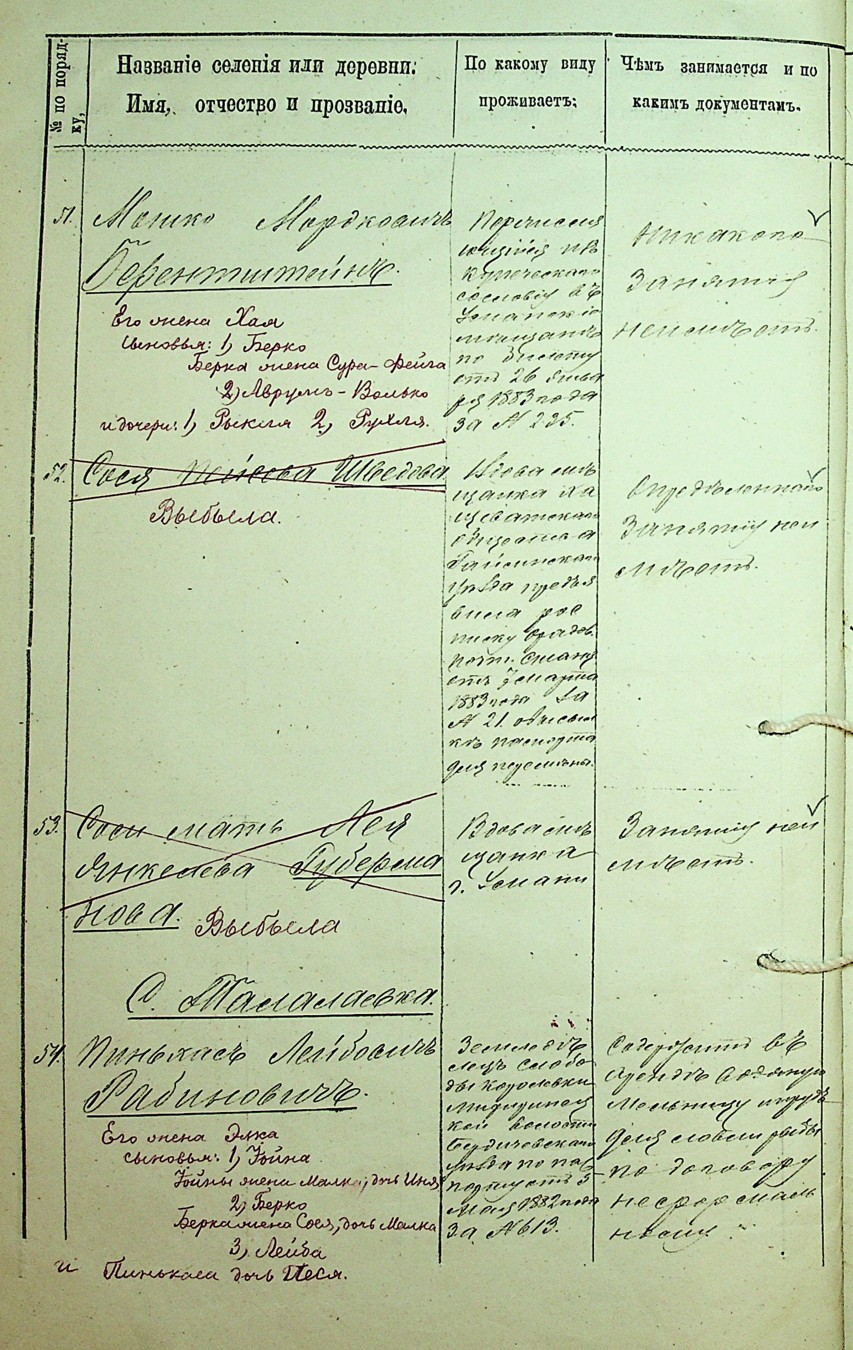 № по поряд-
ку,
Названіе селенія или деревни:
Имя, отчество и прозваніе,
По какому виду
проживаетъ:
Чѣмъ занимается и по
какимъ документамъ.
51. Мошко Мордковичъ
Беренштейнъ.
Его жена Хая
сыновья: 1) Берко
Берка жена Сура-Фейга
2) Аврумъ-Волько
и дочери: 1) Рыкля 2) Рухля.
купеческаго
сословія въ
по билету
отъ 26 Янва
ря 1883 года
за № 235.
никакого
занятія
неимѣетъ.
52. Сося Шведова
Выбыла.
Вдова мѣ
щанка Ха
щеватскаго
общества
Гайсинскаго
уѣзда предъя
вила рос
писку
отъ 7 марта
1883 года за
№ 21.
Опредѣленнаго
занятія неи
мѣетъ.
53. Соси мать Лея
Янкелева Губерма
нова. Выбыла
Вдова мѣ
щанка
г. Умани
Занятія неи
мѣетъ.
С. Талалаевка.
54. Пинькасъ Лейбовичъ
Рабиновичъ.
Его жена Элка
сыновья: 1) Іойна
Іойны жена Малка, дочь Иня,
2) Берко
Берка жена Сося, дочь Малка
3) Лейба
и Пинькаса дочь Песя.
Земледѣ
лецъ слобо
ды Королевки
кой волости
Бердичевскаго
уѣзда по пас
порту отъ 5
мая 1882 года
за № 613.
Содержитъ въ
арендѣ водяную
мельницу и прудъ
для ловли рыбы
по договору
неформаль
ному